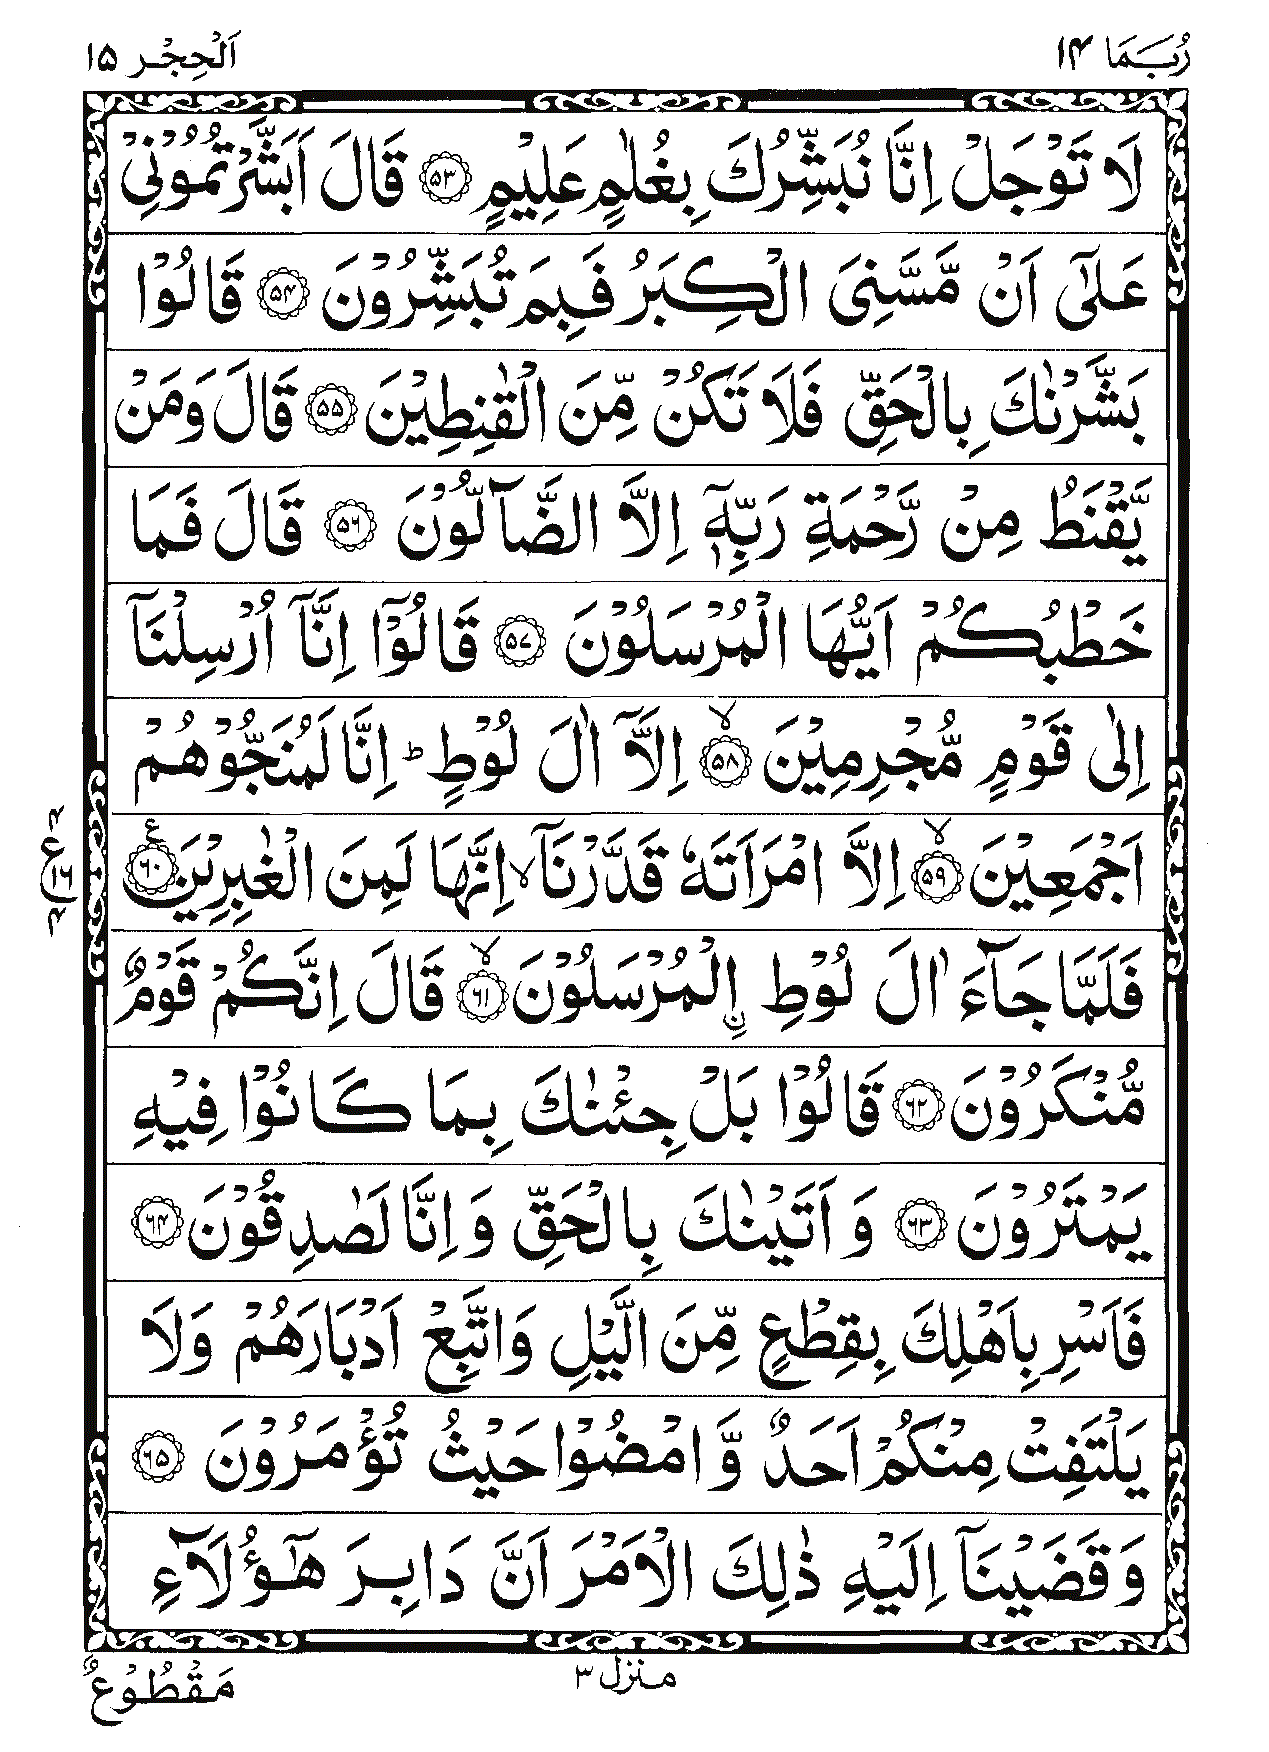 رُبَمَا ١٤
اَلْحِجْر ١٥
لَا تَوْجَلْ اِنَّا نُبَشِّرُكَ بِغُلٰمٍ عَلِيْمٍ ۝٥٣ قَالَ اَبَشَّرْتُمُوْنِيْ
عَلٰٓى اَنْ مَّسَّنِىَ الْكِبَرُ فَبِمَ تُبَشِّرُوْنَ ۝٥٤ قَالُوْا
بَشَّرْنٰكَ بِالْحَقِّ فَلَا تَكُنْ مِّنَ الْقٰنِطِيْنَ ۝٥٥ قَالَ وَمَنْ
يَّقْنَطُ مِنْ رَّحْمَةِ رَبِّهٖٓ اِلَّا الضَّآلُّوْنَ ۝٥٦ قَالَ فَمَا
خَطْبُكُمْ اَيُّهَا الْمُرْسَلُوْنَ ۝٥٧ قَالُوْٓا اِنَّآ اُرْسِلْنَآ
اِلٰى قَوْمٍ مُّجْرِمِيْنَ ۝٥٨ۙ اِلَّآ اٰلَ لُوْطٍ ؕ اِنَّا لَمُنَجُّوْهُمْ
اَجْمَعِيْنَ ۝٥٩ۙ اِلَّا امْرَاَتَهٗ قَدَّرْنَآ ۙ اِنَّهَا لَمِنَ الْغٰبِرِيْنَ ۝٦٠ ع
ع ١٦
فَلَمَّا جَآءَ اٰلَ لُوْطِ ِۨالْمُرْسَلُوْنَ ۝٦١ۙ قَالَ اِنَّكُمْ قَوْمٌ
مُّنْكَرُوْنَ ۝٦٢ قَالُوْا بَلْ جِئْنٰكَ بِمَا كَانُوْا فِيْهِ
يَمْتَرُوْنَ ۝٦٣ وَ اَتَيْنٰكَ بِالْحَقِّ وَ اِنَّا لَصٰدِقُوْنَ ۝٦٤
فَاَسْرِ بِاَهْلِكَ بِقِطْعٍ مِّنَ الَّيْلِ وَاتَّبِعْ اَدْبَارَهُمْ وَلَا
يَلْتَفِتْ مِنْكُمْ اَحَدٌ وَّ امْضُوْا حَيْثُ تُؤْمَرُوْنَ ۝٦٥
وَقَضَيْنَآ اِلَيْهِ ذٰلِكَ الْاَمْرَ اَنَّ دَابِرَ هٰٓؤُلَآءِ
منزل ٣
مَقْطُوْعٌ